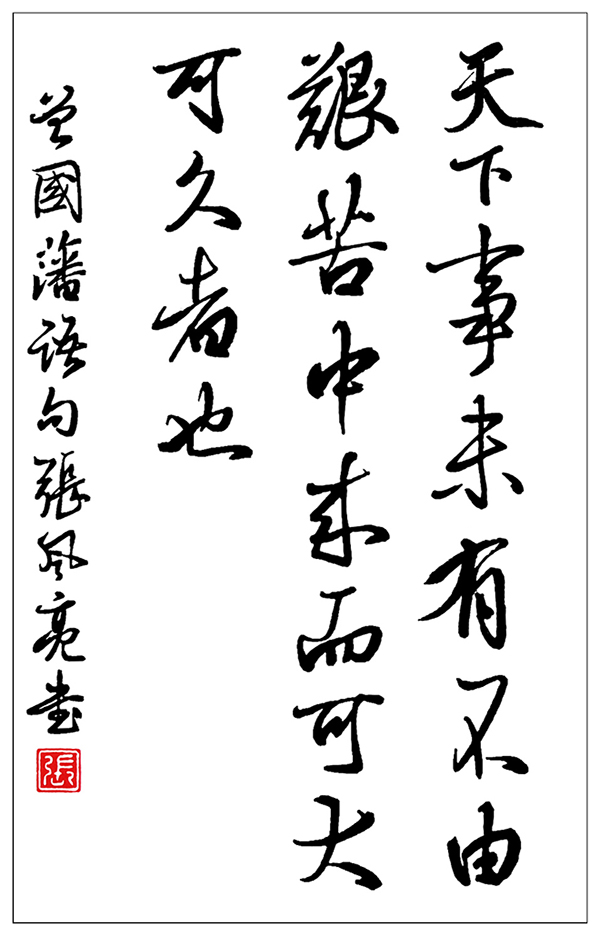 天下事未有不由
艱苦中來而可大
可久者也
曾國藩語句張風亮書
張